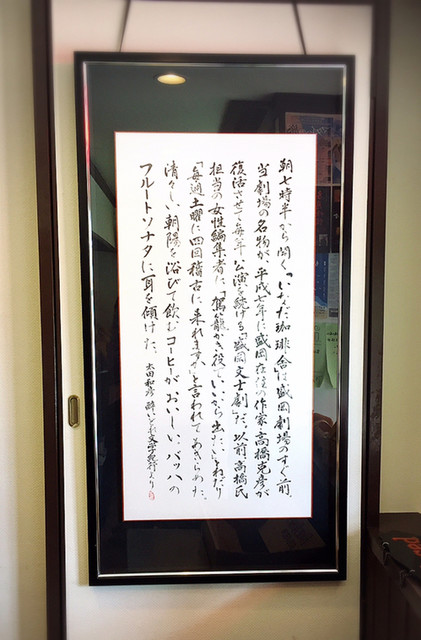 朝七時半から開く「いなだ珈琲舎」は盛岡劇場のすぐ前。
当劇場の名物が、平成七年に盛岡在住の作家高橋克彦が
復活させて毎年公演を続ける「盛岡文士劇」だ。以前高橋氏
担当の女性編集者に、「駕籠かき役でいいから出たい」とねだり
「毎週土曜に四回稽古に来れますか」と言われてあきらめた。
清々しい朝陽を浴びて飲むコーヒーがおいしい。バッハの
フルートソナタに耳を傾けた。
太田和彦 酔いどれ文学紀行より